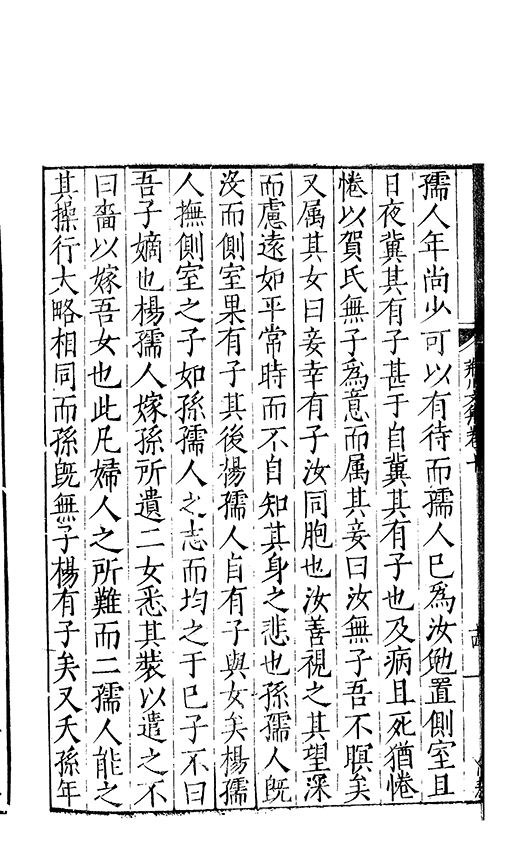 孺人年尚少可以有待而孺人已爲汝勉置側室且
日夜冀其有子甚于自冀其有子也及病且死猶惓
惓以賀氏無子爲意而属其妾曰汝無子吾不瞑矣
又属其女曰妾幸有子汝同胞也汝善視之其望深
而慮遠如平常時而不自知其身之悲也孫孺人既
沒而側室果有子其後楊孺人自有子與女矣楊孺
人撫側室之子如孫孺人之志而均之于已子不曰
吾子嫡也楊孺人嫁孫所遺二女悉其裝以遣之不
曰嗇以嫁吾女也此凡婦人之所難而二孺人能之
其操行大略相同而孫旣無子楊有子矣又夭孫年
荊川文集卷十